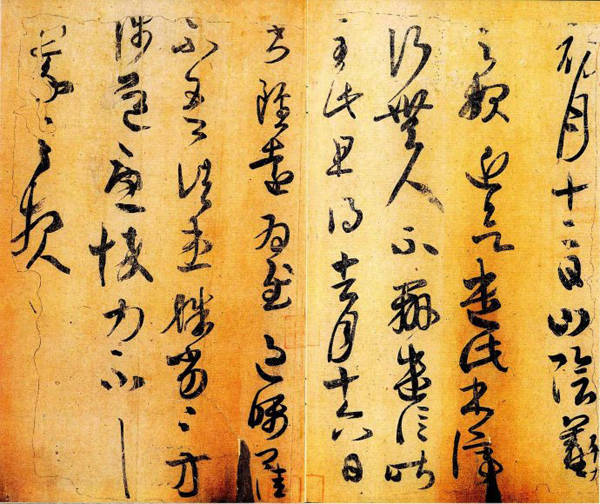 初月十二日山陰羲
之報近欲遣此書停
行無人不辦遣信昨
至此且得去月十六日
書雖遠為慰過囑卿
不吾諸患殊劣方
涉道憂悴力不
羲之報